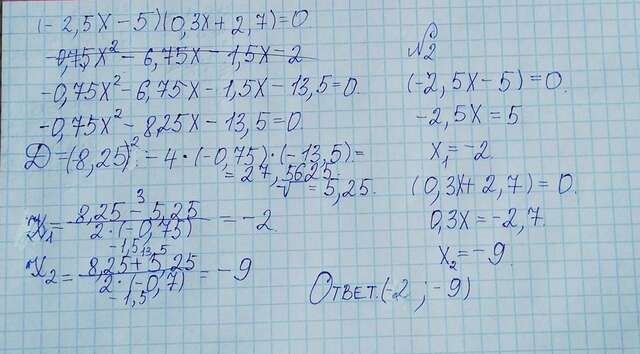 (-2,5x-5)(0,3x+2,7)=0
-0,75x² - 6,75x - 1,5x - 2
-0,75x² - 6,75x - 1,5x - 13,5=0
-0,75x² - 8,25x - 13,5=0.
D=(8,25)² - 4·(-0,75)·(-13,5)=
= 27,5625.
√ = 5,25.
3
x₁= (8,25-5,25)/(2·(-0,75)) = -2
-1,5
13,5
x₂= (8,25+5,25)/(2·(-0,7)) = -9
-1,5
№2
(-2,5x-5)=0.
-2,5x=5
x₁=-2.
(0,3x+2,7)=0.
0,3x=-2,7.
x₂=-9.
Ответ.(-2;-9)